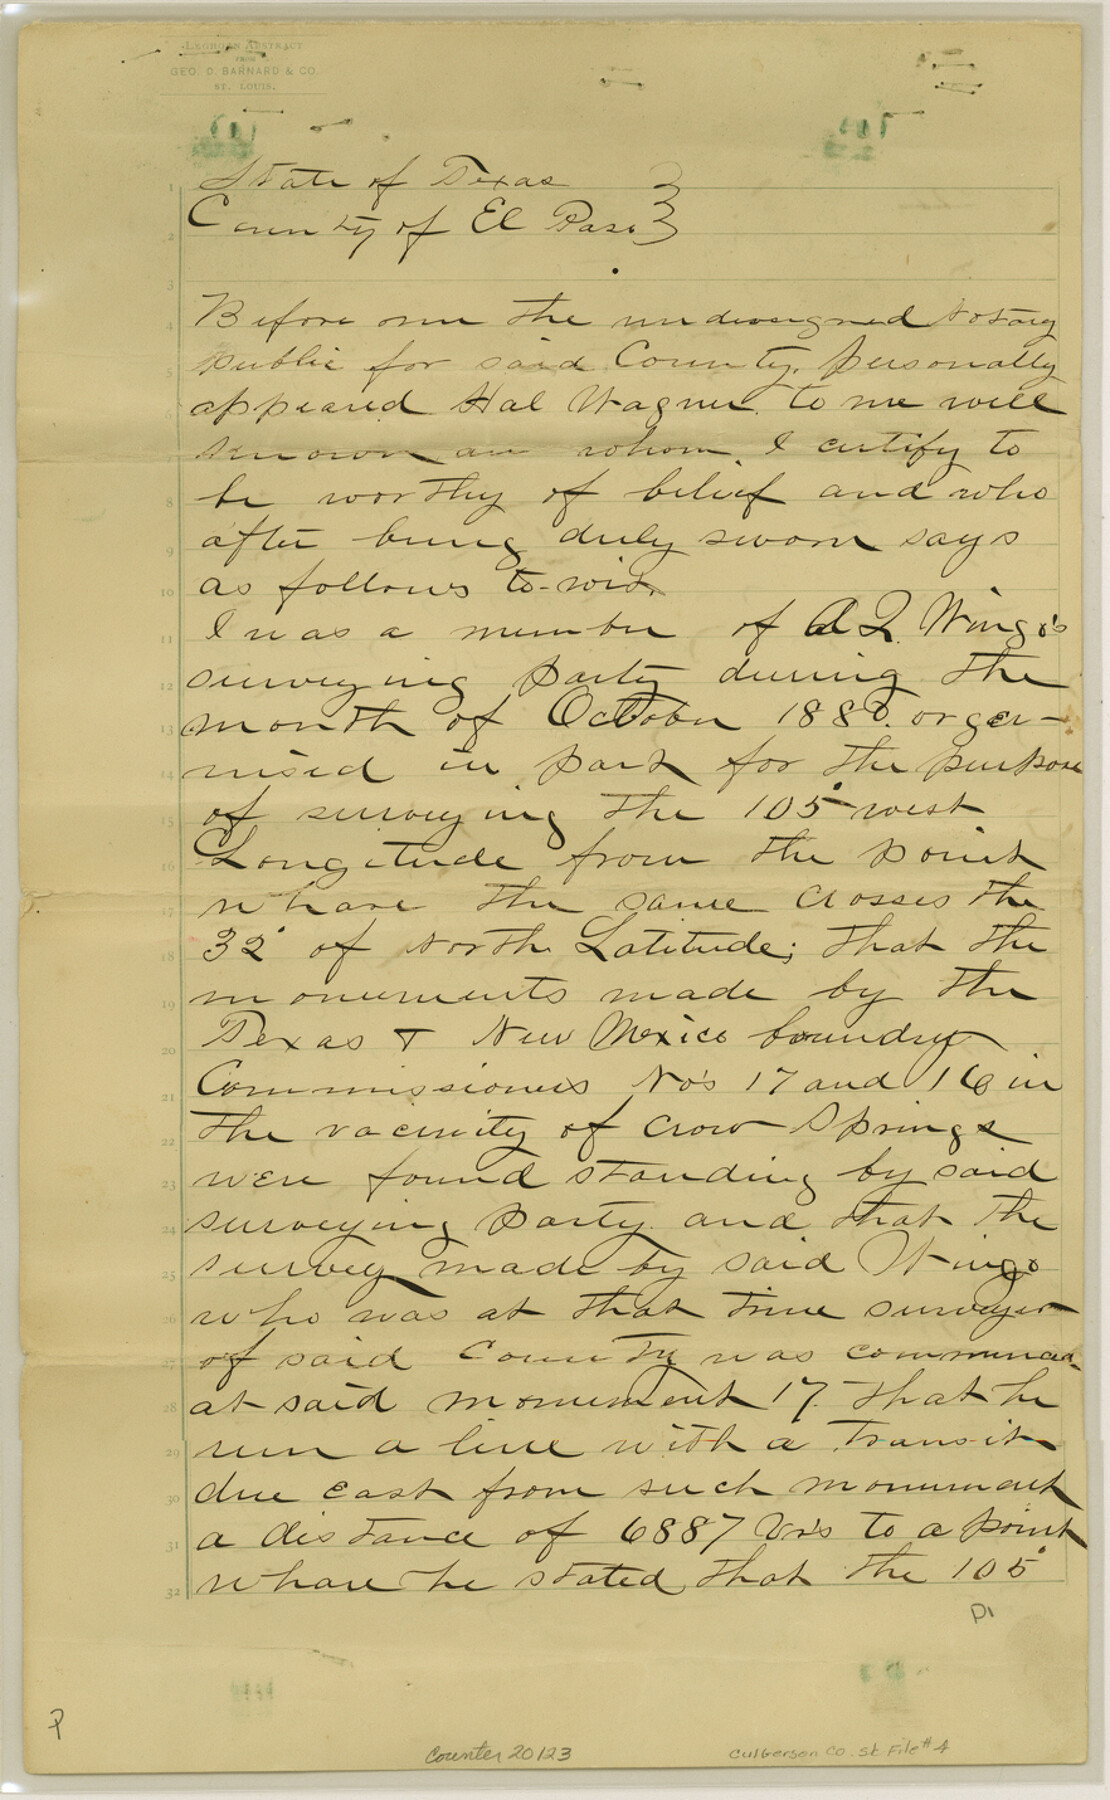 LEGHORN ABSTRACT
FROM
GEO. D. BARNARD & CO.
ST. LOUIS.
State of Texas }
County of El Paso }
Before me the undersigned Notary
public for said County, personally
appeared Hal Wagner to me well
known an whom I certify to
be worthy of belief and who
after being duly sworn says
as follows to-wit.
I was a member of A Q. Wingo's
surveying party during the
month of October 188 . orga-
nised in part for the purpose
of surveying the 105° west
Longitude from the point
whare the same crosses the
32° of North Latitude; that the
monuments made by the
Texas & New Mexico boundry
Commissioners No's 17 and 16 in
the vacinity of Crow Springs
were found standing by said
surveying party and that the
survey made by said Wingo
who was at that time surveyor
of said County was commenced
at said monument 17. that he
run a line with a transit
due east from such monument
a distance of 6887 Vrs to a point
whare he stated that the 105°
P1
P
Counter 20123
Culberson Co. Sk File #4